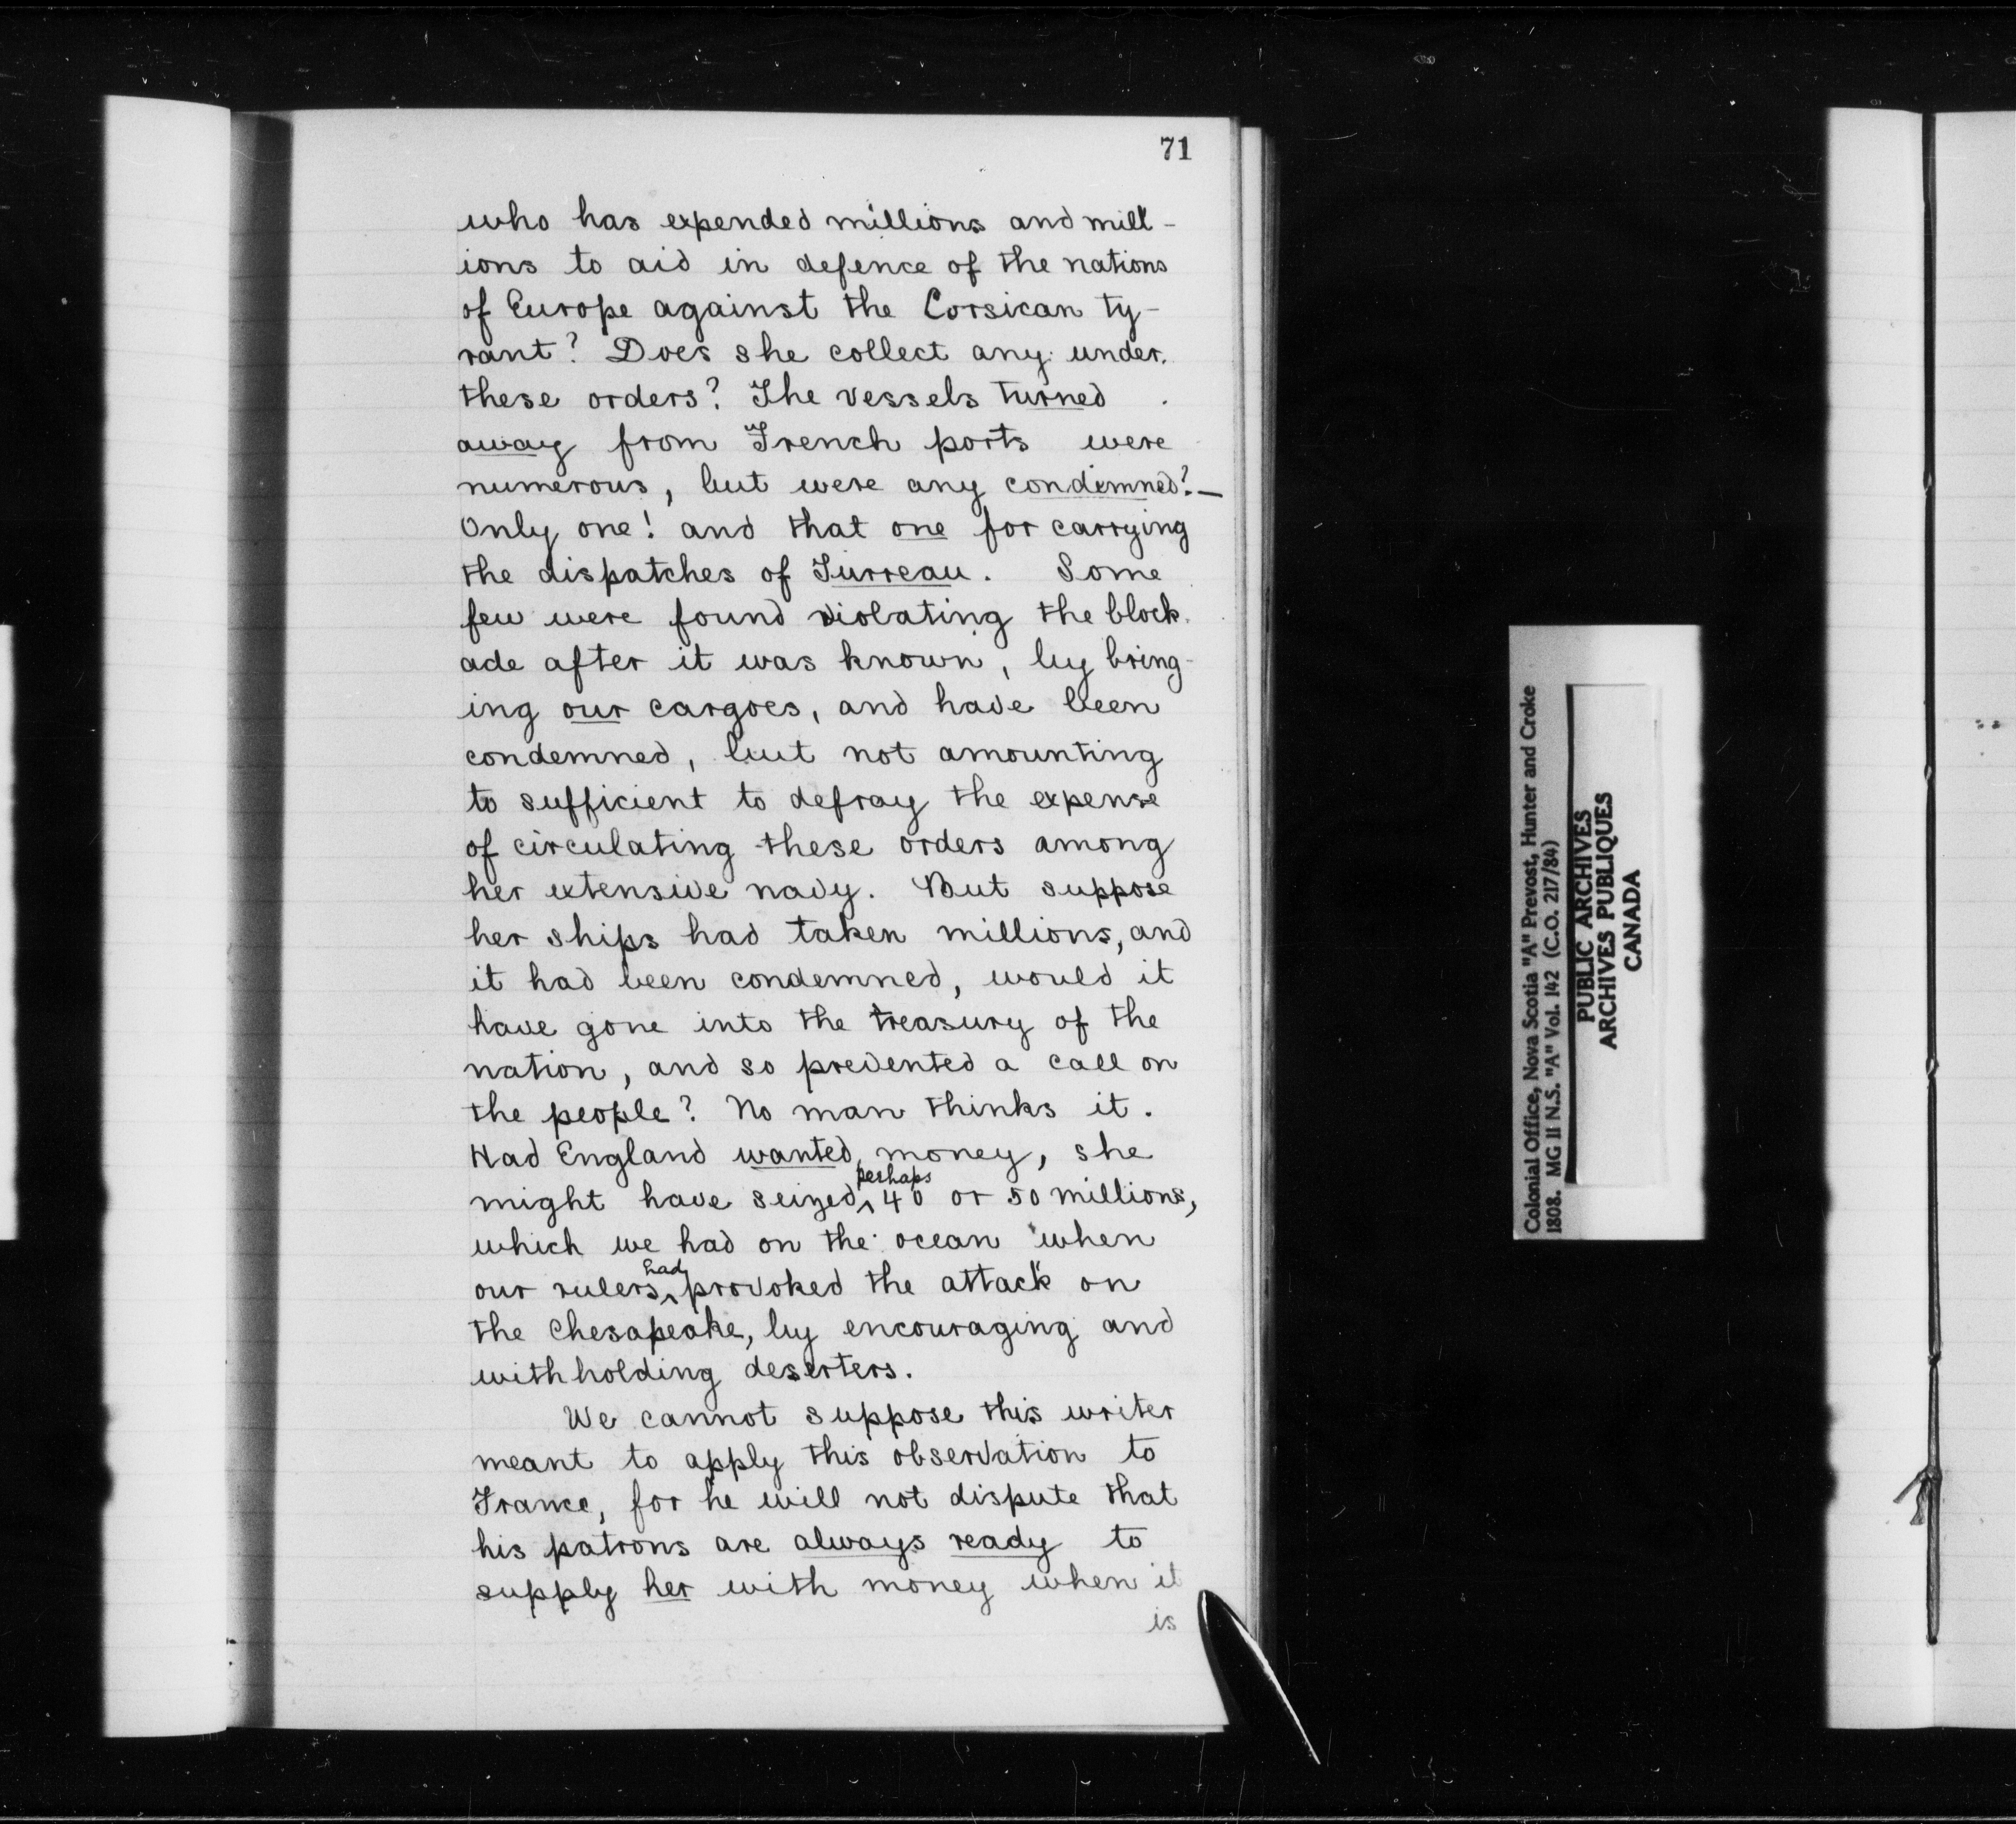 71
who has expended millions and mill-
ions to aid in defence of the nations
of Europe against the Corsican ty-
rant? Does she collect any under
these orders? The vessels turned
away from French ports were
numerous, but were any condemned?—
Only one! and that one for carrying
the dispatches of Turreau. Some
few were found violating the block
ade after it was known, by bring-
ing our cargoes, and have been
condemned, but not amounting
to sufficient to defray the expense
of circulating these orders among
her extensive navy. But suppose
her ships had taken millions, and
it had been condemned, would it
have gone into the treasury of the
nation, and so prevented a call on
the people? No man thinks it.
Had England wanted money, she
might have seized perhaps 40 or 50 millions,
which we had on the ocean when
our rulers had provoked the attack on
the Chesapeake, by encouraging and
withholding deserters.
We cannot suppose this writer
meant to apply this observation to
France, for he will not dispute that
his patrons are always ready to
supply her with money when it
is
Colonial Office, Nova Scotia "A" Prevost, Hunter and Croke
1808. MG 11 N.S. "A" Vol. 142 (C.O. 217/84)
PUBLIC ARCHIVES
ARCHIVES PUBLIQUES
CANADA